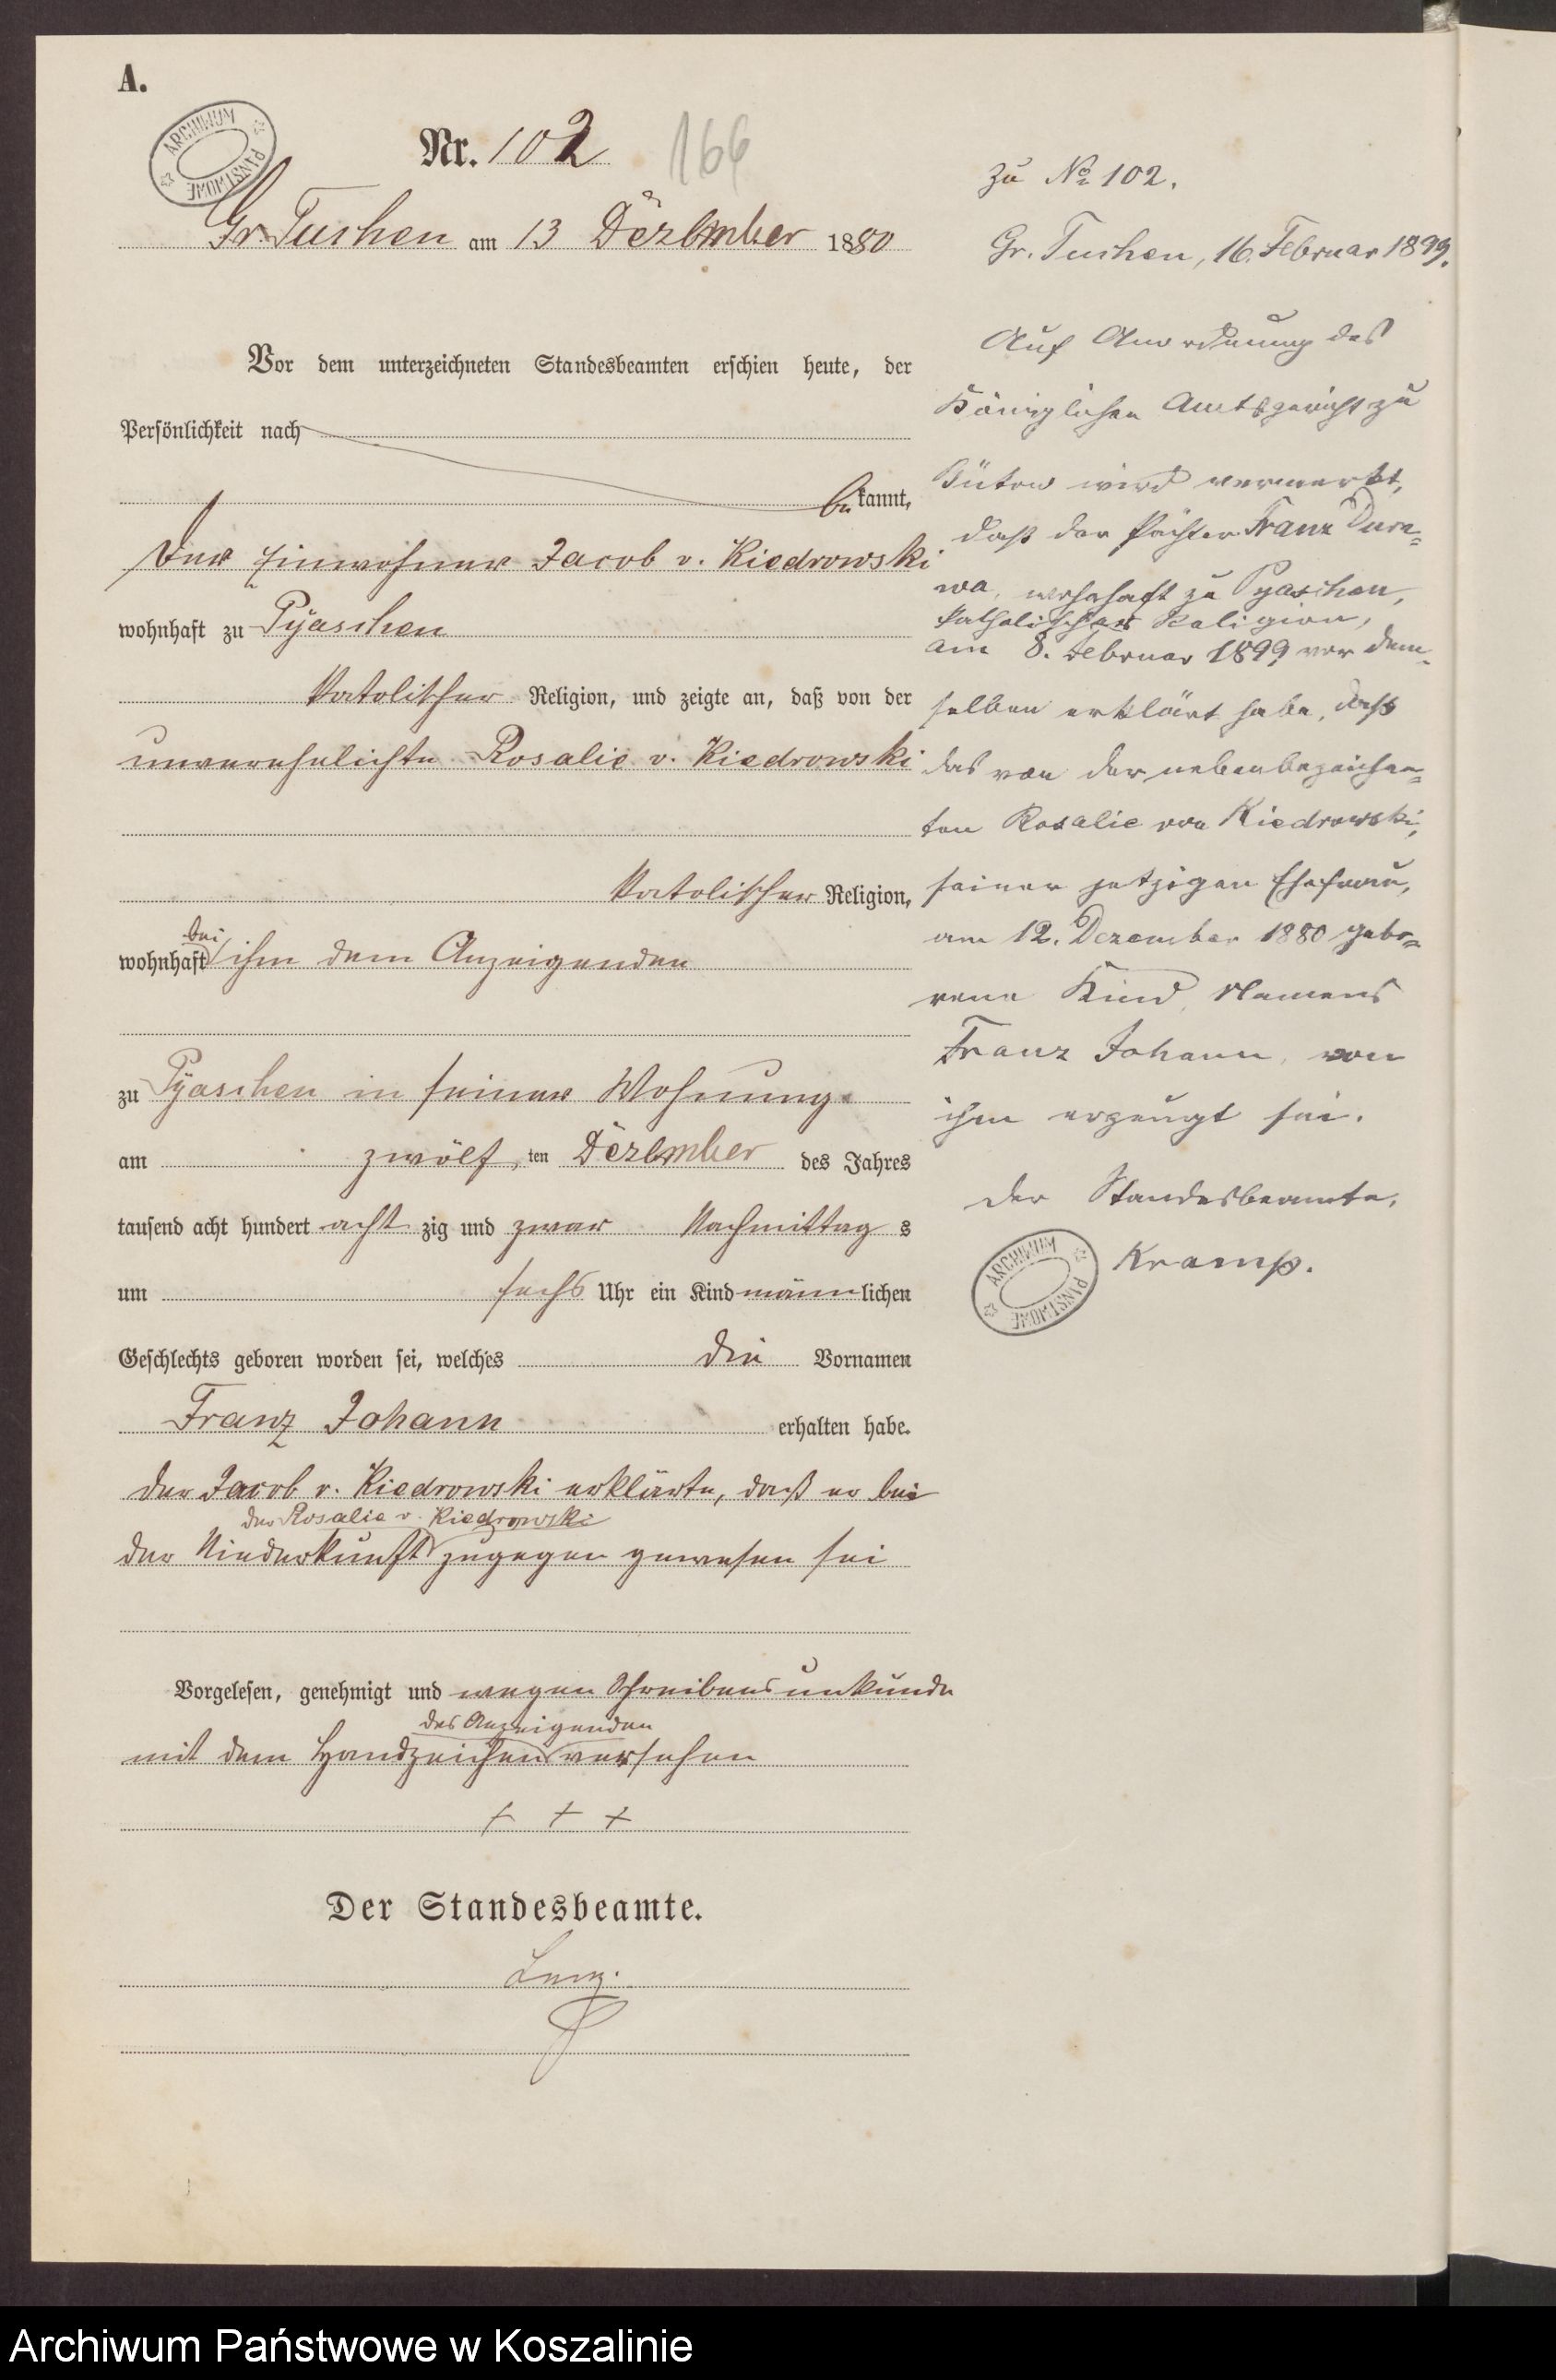 A.
ARCHIWUM PAŃSTWOWE
Nr. 102
166
Gr. Tuchen am 13 Dezember 1880
Vor dem unterzeichneten Standesbeamten erschien heute, der
Persönlichkeit nach
bekannt,
der Einwohner Jacob v. Kiedrowski
wohnhaft zu Pyaschen
katolischer Religion, und zeigte an, daß von der
unverehelichte Rosalie v. Kiedrowski
katolischer Religion,
bei
wohnhaft ihm dem Anzeigenden
zu Pyaschen in seiner Wohnung
am zwölf ten Dezember des Jahres
tausend acht hundert acht zig und zwar Nachmittag s
um sechs Uhr ein Kind männlichen
Geschlechts geboren worden sei, welches die Vornamen
Franz Johann erhalten habe.
der Jacob v. Kiedrowski erklärte, daß er bei
der Rosalie v. Kiedrowski
der Niederkunft zugegen gewesen sei
Vorgelesen, genehmigt und wegen Schreibensunkunde
des Anzeigenden
mit dem Handzeichen versehen
+ + +
Der Standesbeamte.
Lenz.
zu No 102.
Gr. Tuchen, 16. Februar 1899.
Auf Anordnung des
Königlichen Amtsgericht zu
Bütow wird vermerkt,
daß der Pächter Franz Dura=
wa, wohnhaft zu Pyaschen,
katholischer Religion,
am 8. Februar 1899 vor dem=
selben erklärt habe, daß
das von der nebenbezeichne=
ten Rosalie von Kiedrowski,
seiner jetzigen Ehefrau,
am 12. Dezember 1880 gebo=
rene Kind, Namens
Franz Johann, von
ihm erzeugt sei.
Der Standesbeamte.
Kramp.
ARCHIWUM PAŃSTWOWE
Archiwum Państwowe w Koszalinie